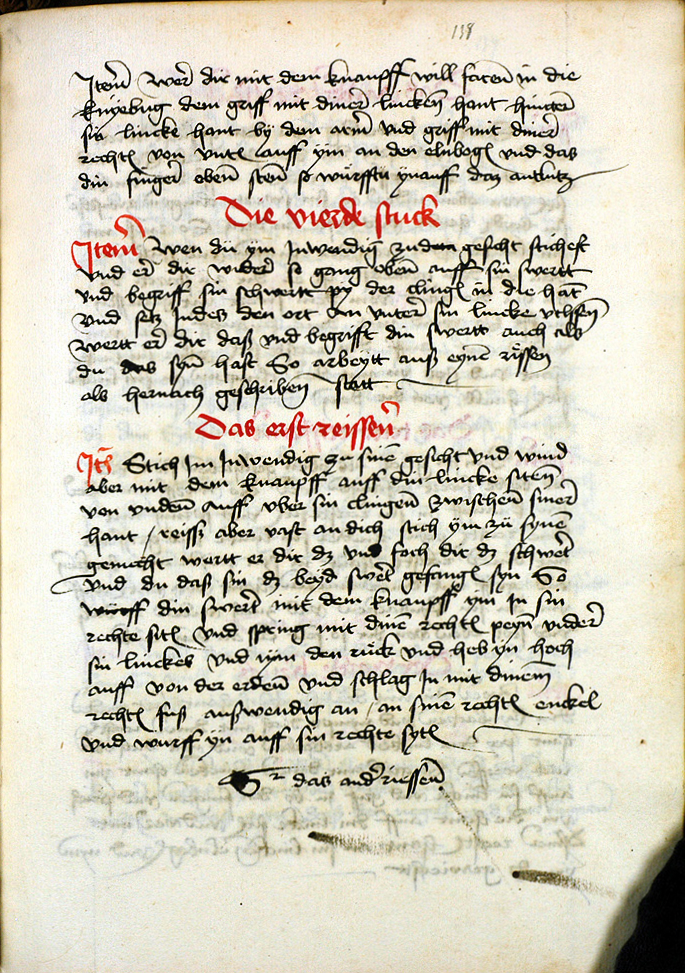 138
Item Wer dir mit dem knaupff will faren in die
knyebug dem griff mit diner lincken hant hinter
sin lincke hant by dem arm vnd griff mit diner
rechtn von vntn auff ym an den elnbogn vnd das
din finger oben sten so würffstu yn auff daz antlütz
Die vierde stuck
Item Wen dü ym Inwendig zu dem gesicht stichest
vnd er dir wider so gang oben auff sin swertt
vnd begriff sin schwertt py der clingn in die hat
vnd setz Indes den ort an vnter sin lincke vchsen
wertt er dir daß vnd begrifft din swertt auch als
du das syn hast So arbeytt auß eyne rissen
als hernach geschriben stett
Das erst reissen
Ite Stich Im Inwendig zu sine gesicht vnd wind
aber mit dem knaupff auff din lincke siten
von vnden auff vber sin clingen zwischen siner
hant / reiss aber vast an dich stich ym zü syne
gemecht wertt er dir dz vnd foch dir dz schwert
vnd du daß sin dz beyd swert gefangn syn So
würff din swert mit dem knaupff ym In sin
rechte sitn vnd spring mit dine rechtn peyn vnder
sin linckes vnd nym den rück vnd heb yn hoch
auff von der erden vnd schlag In mit dinem
rechtn fuß außwendig an / an sine rechtn enckel
vnd wurff yn auff sin rechte sytn
das ander riessen